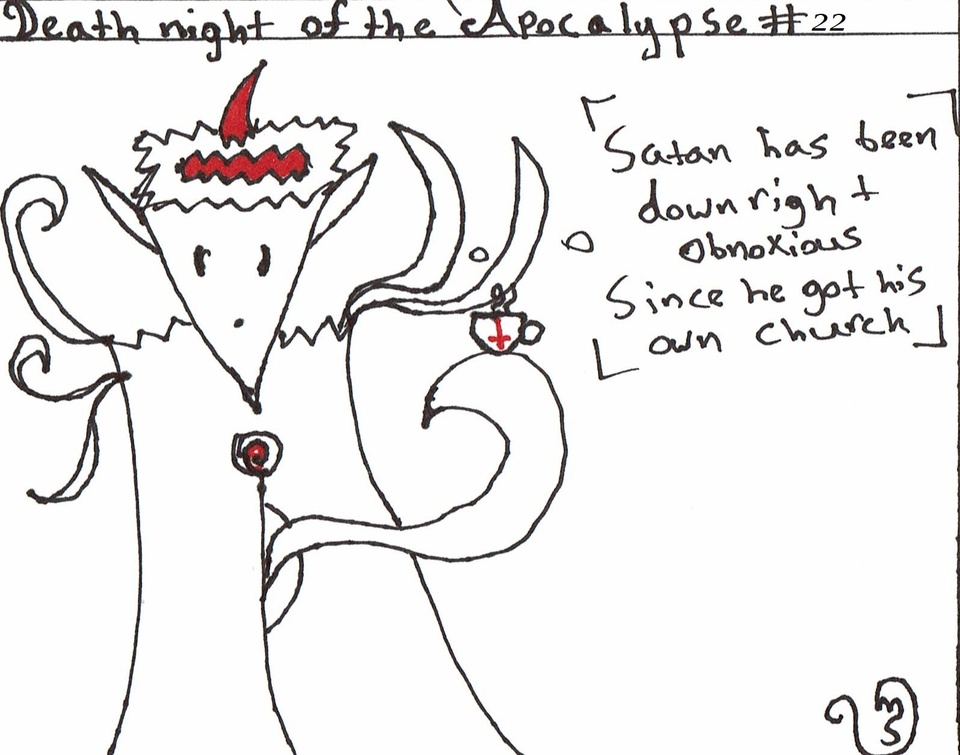 Death night of the Apocalypse #22
Satan has been
downright
obnoxious
Since he got his
own church